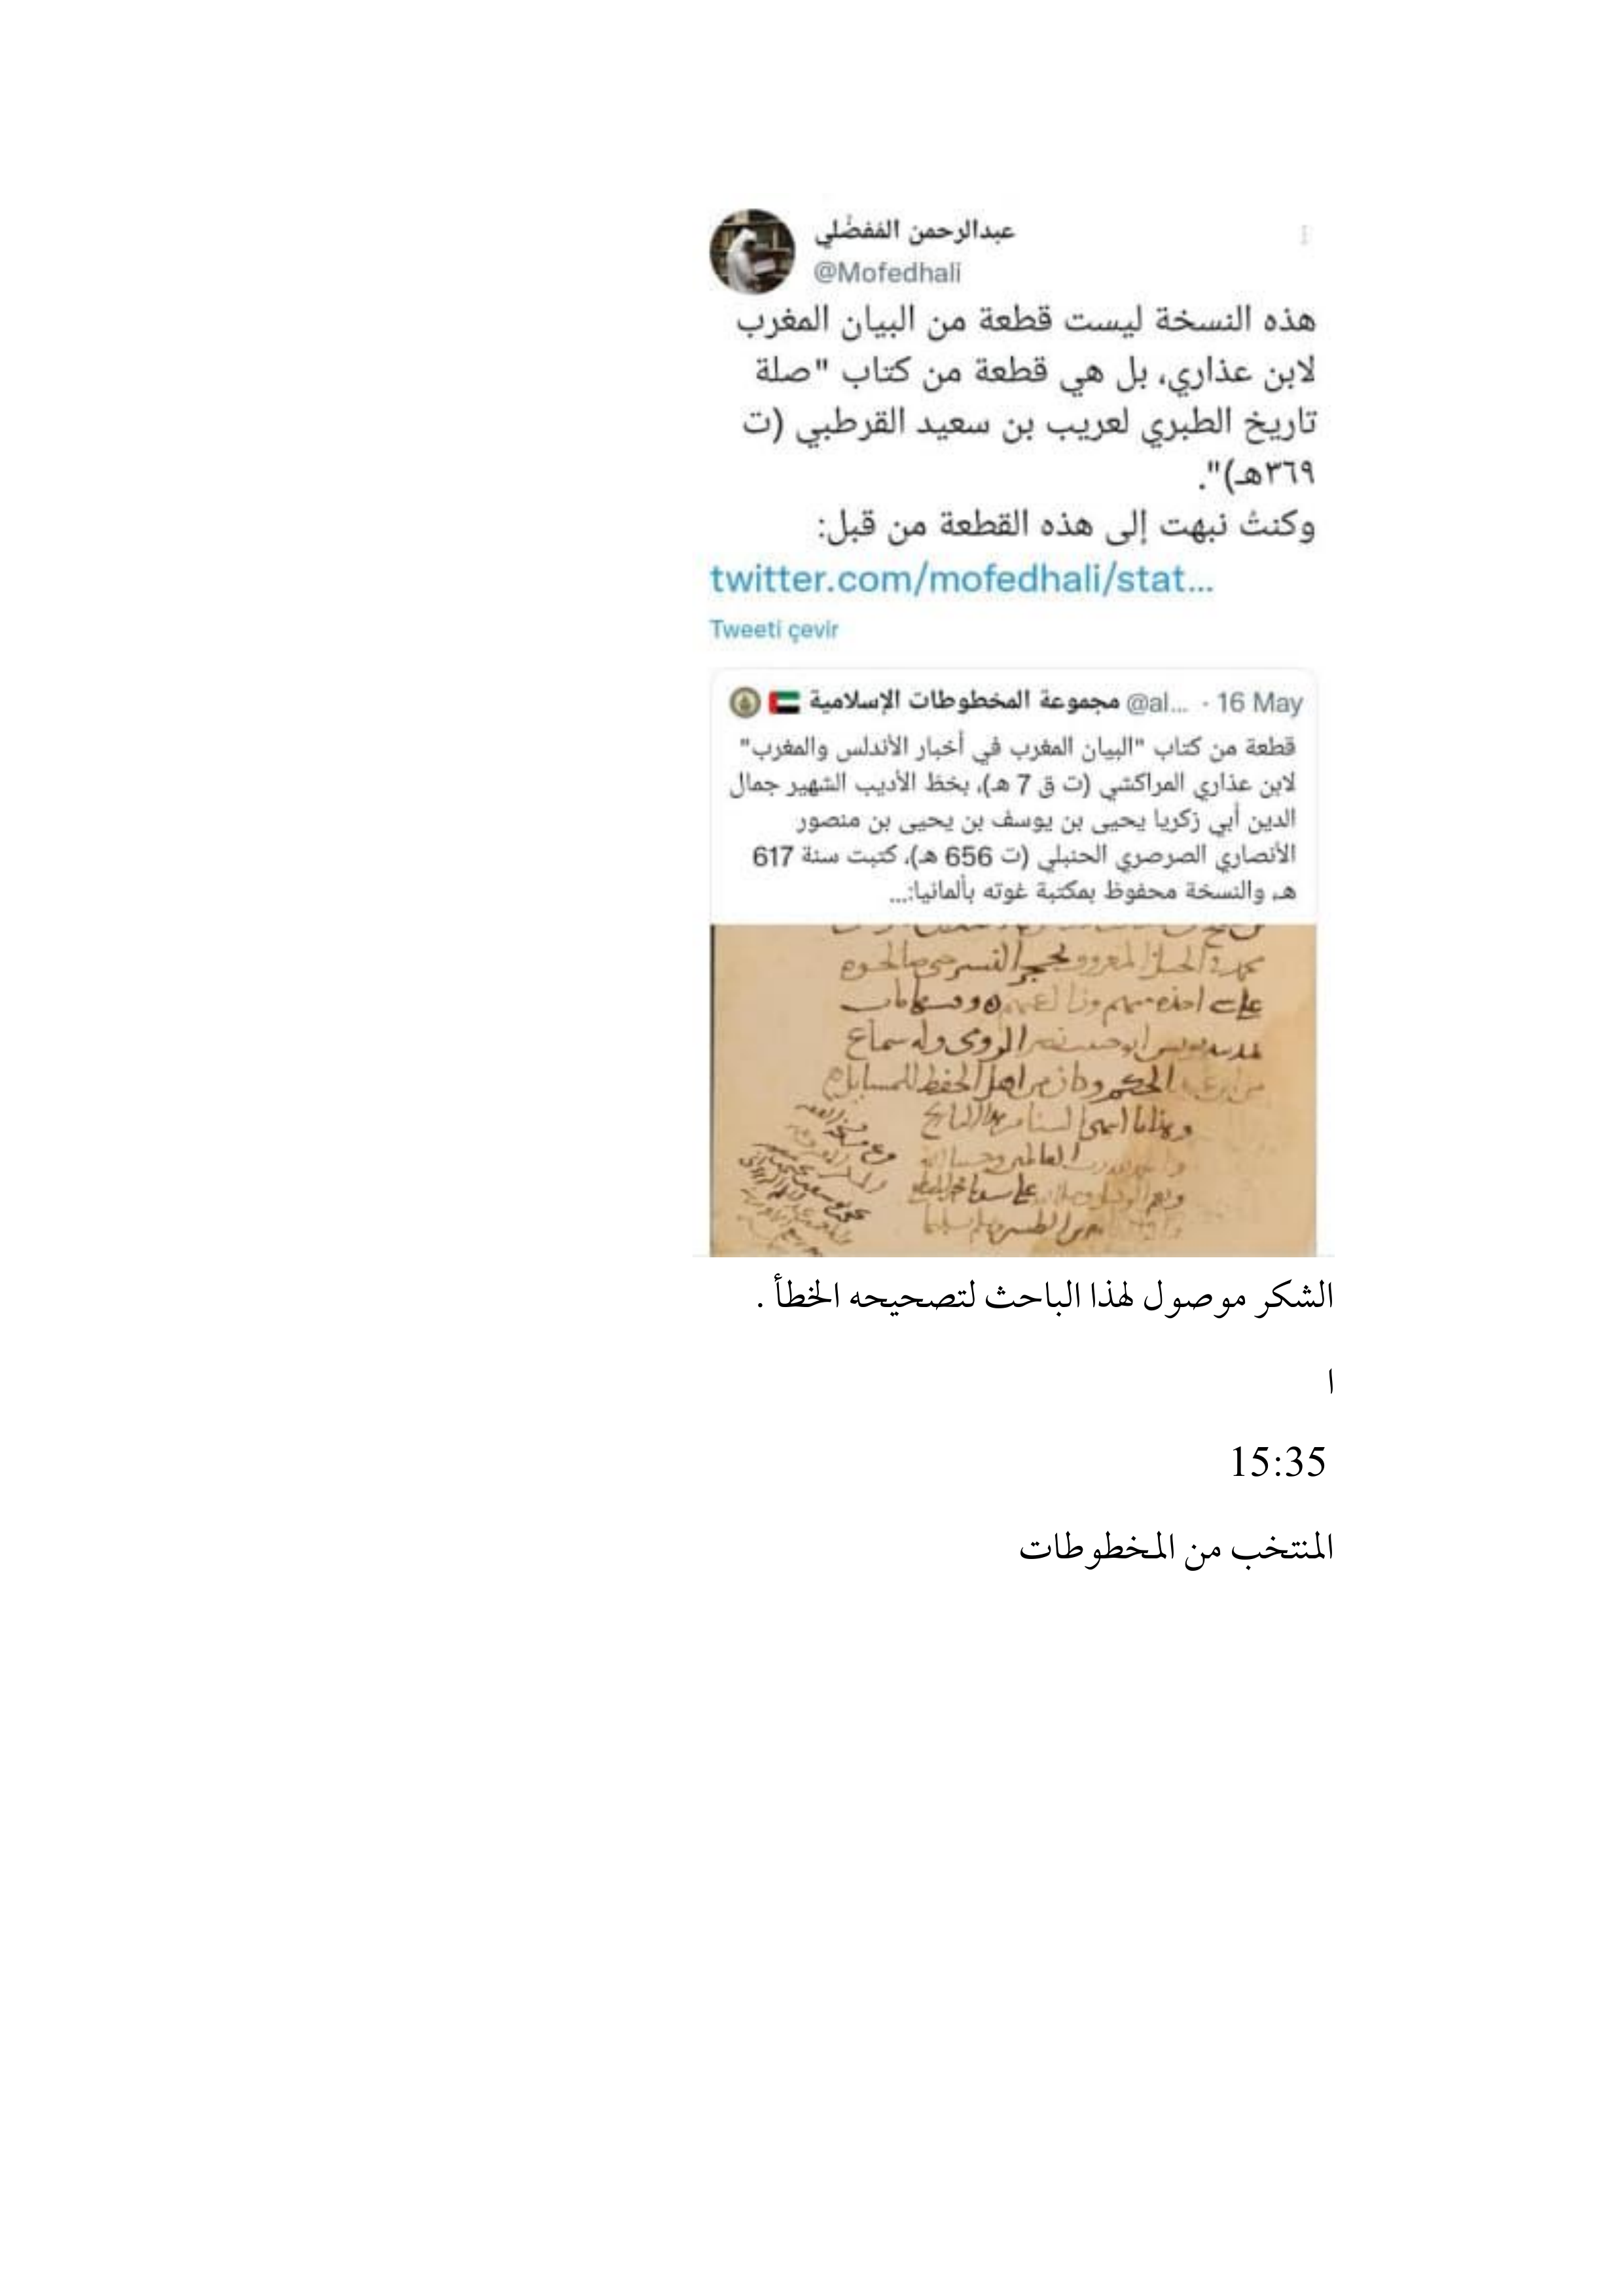 عبدالرحمن المُفضَّلي
@Mofedhali
هذه النسخة ليست قطعة من البيان المغرب
لابن عذاري، بل هي قطعة من كتاب "صلة
تاريخ الطبري لعريب بن سعيد القرطبي (ت
٣٦٩هـ)".
وكنتُ نبهت إلى هذه القطعة من قبل:
twitter.com/mofedhali/stat...
Tweeti çevir
مجموعة المخطوطات الإسلامية @al... · 16 May
قطعة من كتاب "البيان المغرب في أخبار الأندلس والمغرب"
لابن عذاري المراكشي (ت ق 7 هـ)، بخطّ الأديب الشهير جمال
الدين أبي زكريا يحيى بن يوسف بن يحيى بن منصور
الأنصاري الصرصري الحنبلي (ت 656 هـ)، كتبت سنة 617
هـ، والنسخة محفوظ بمكتبة غوته بألمانيا:...
على اخذه منهم
الروى وله سماع
الحكم وكان من اهل الحفظ للمسايل
العالمين
الشكر موصول لهذا الباحث لتصحيحه الخطأ .
ا
15:35
المنتخب من المخطوطات